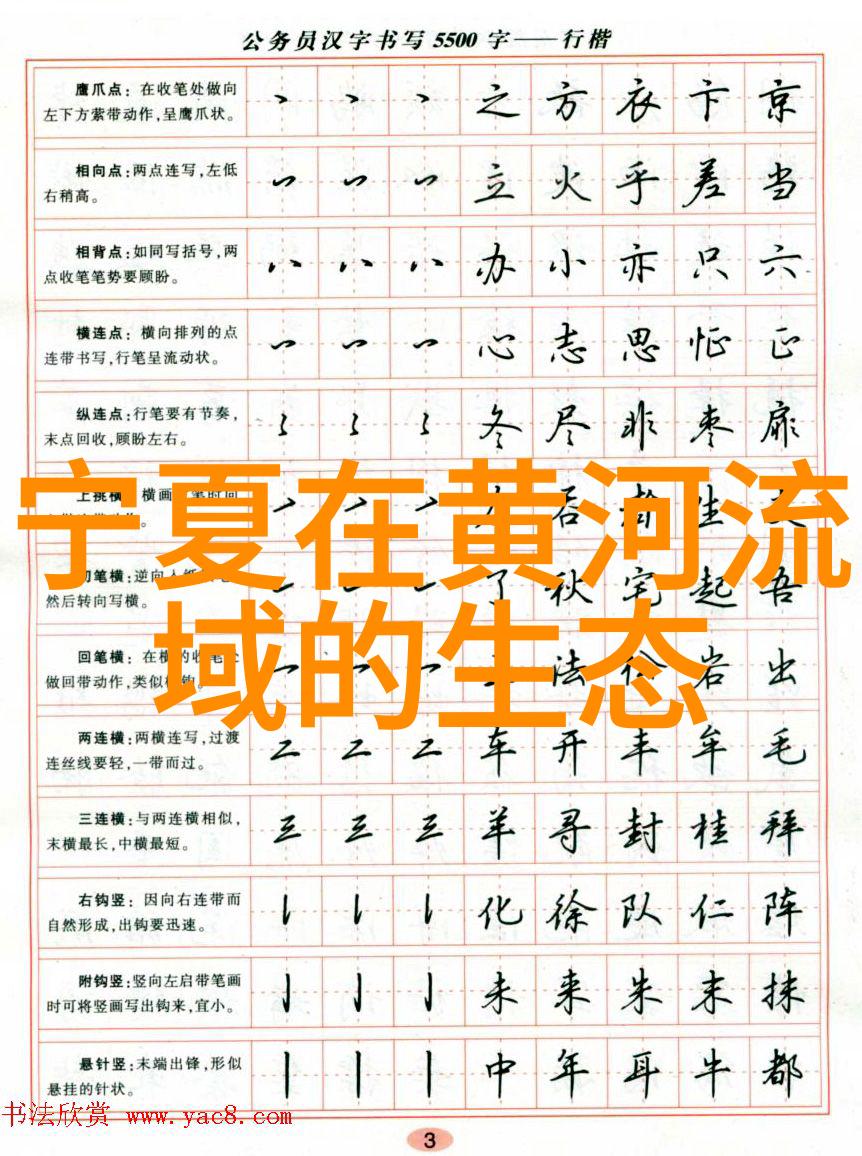 公务员汉字书写5500字——行楷
鹰爪点：在收笔处做向
左下方萦带动作，呈鹰爪状。
之 方 衣 卞 京
相向点：两点连写，左低
右稍高。
立 火 乎 差 当
相背点：如同写括号，两
点收笔笔势要顾盼。
办 小 亦 只 六
横连点：横向排列的点
连带书写，行笔呈流动状。
心 志 思 怔 正
纵连点：行笔要有节奏，
末点回收，顾盼左右。
冬 尽 非 枣 扉
上挑横 横画
生
宁夏在黄河流
域的生态
切笔横：逆向
然后转向写横。
了 秋 宅 起 吾
回笔横：在横的收笔处
做回带动作，类似横钩。
法 岩 出
两连横：两横连写，过渡
连丝线要轻，一带而过。
二 二 二 车 开 丰 牟 毛
三连横：与两连横相似，
末横最长，中横最短。
三 三 三 羊 寻 封 桂 拜
右钩竖：因向右连带而
自然形成，出钩要迅速。
化 徐 队 仁 阵
附钩竖：竖向左启带笔画
时可将竖画写出钩来，宜小。
未 来 朱 末 抹
悬针竖：末端出锋，形似
悬挂的针状。
中 年 耳 牛 都
书法欣赏 www.yac8.com
3